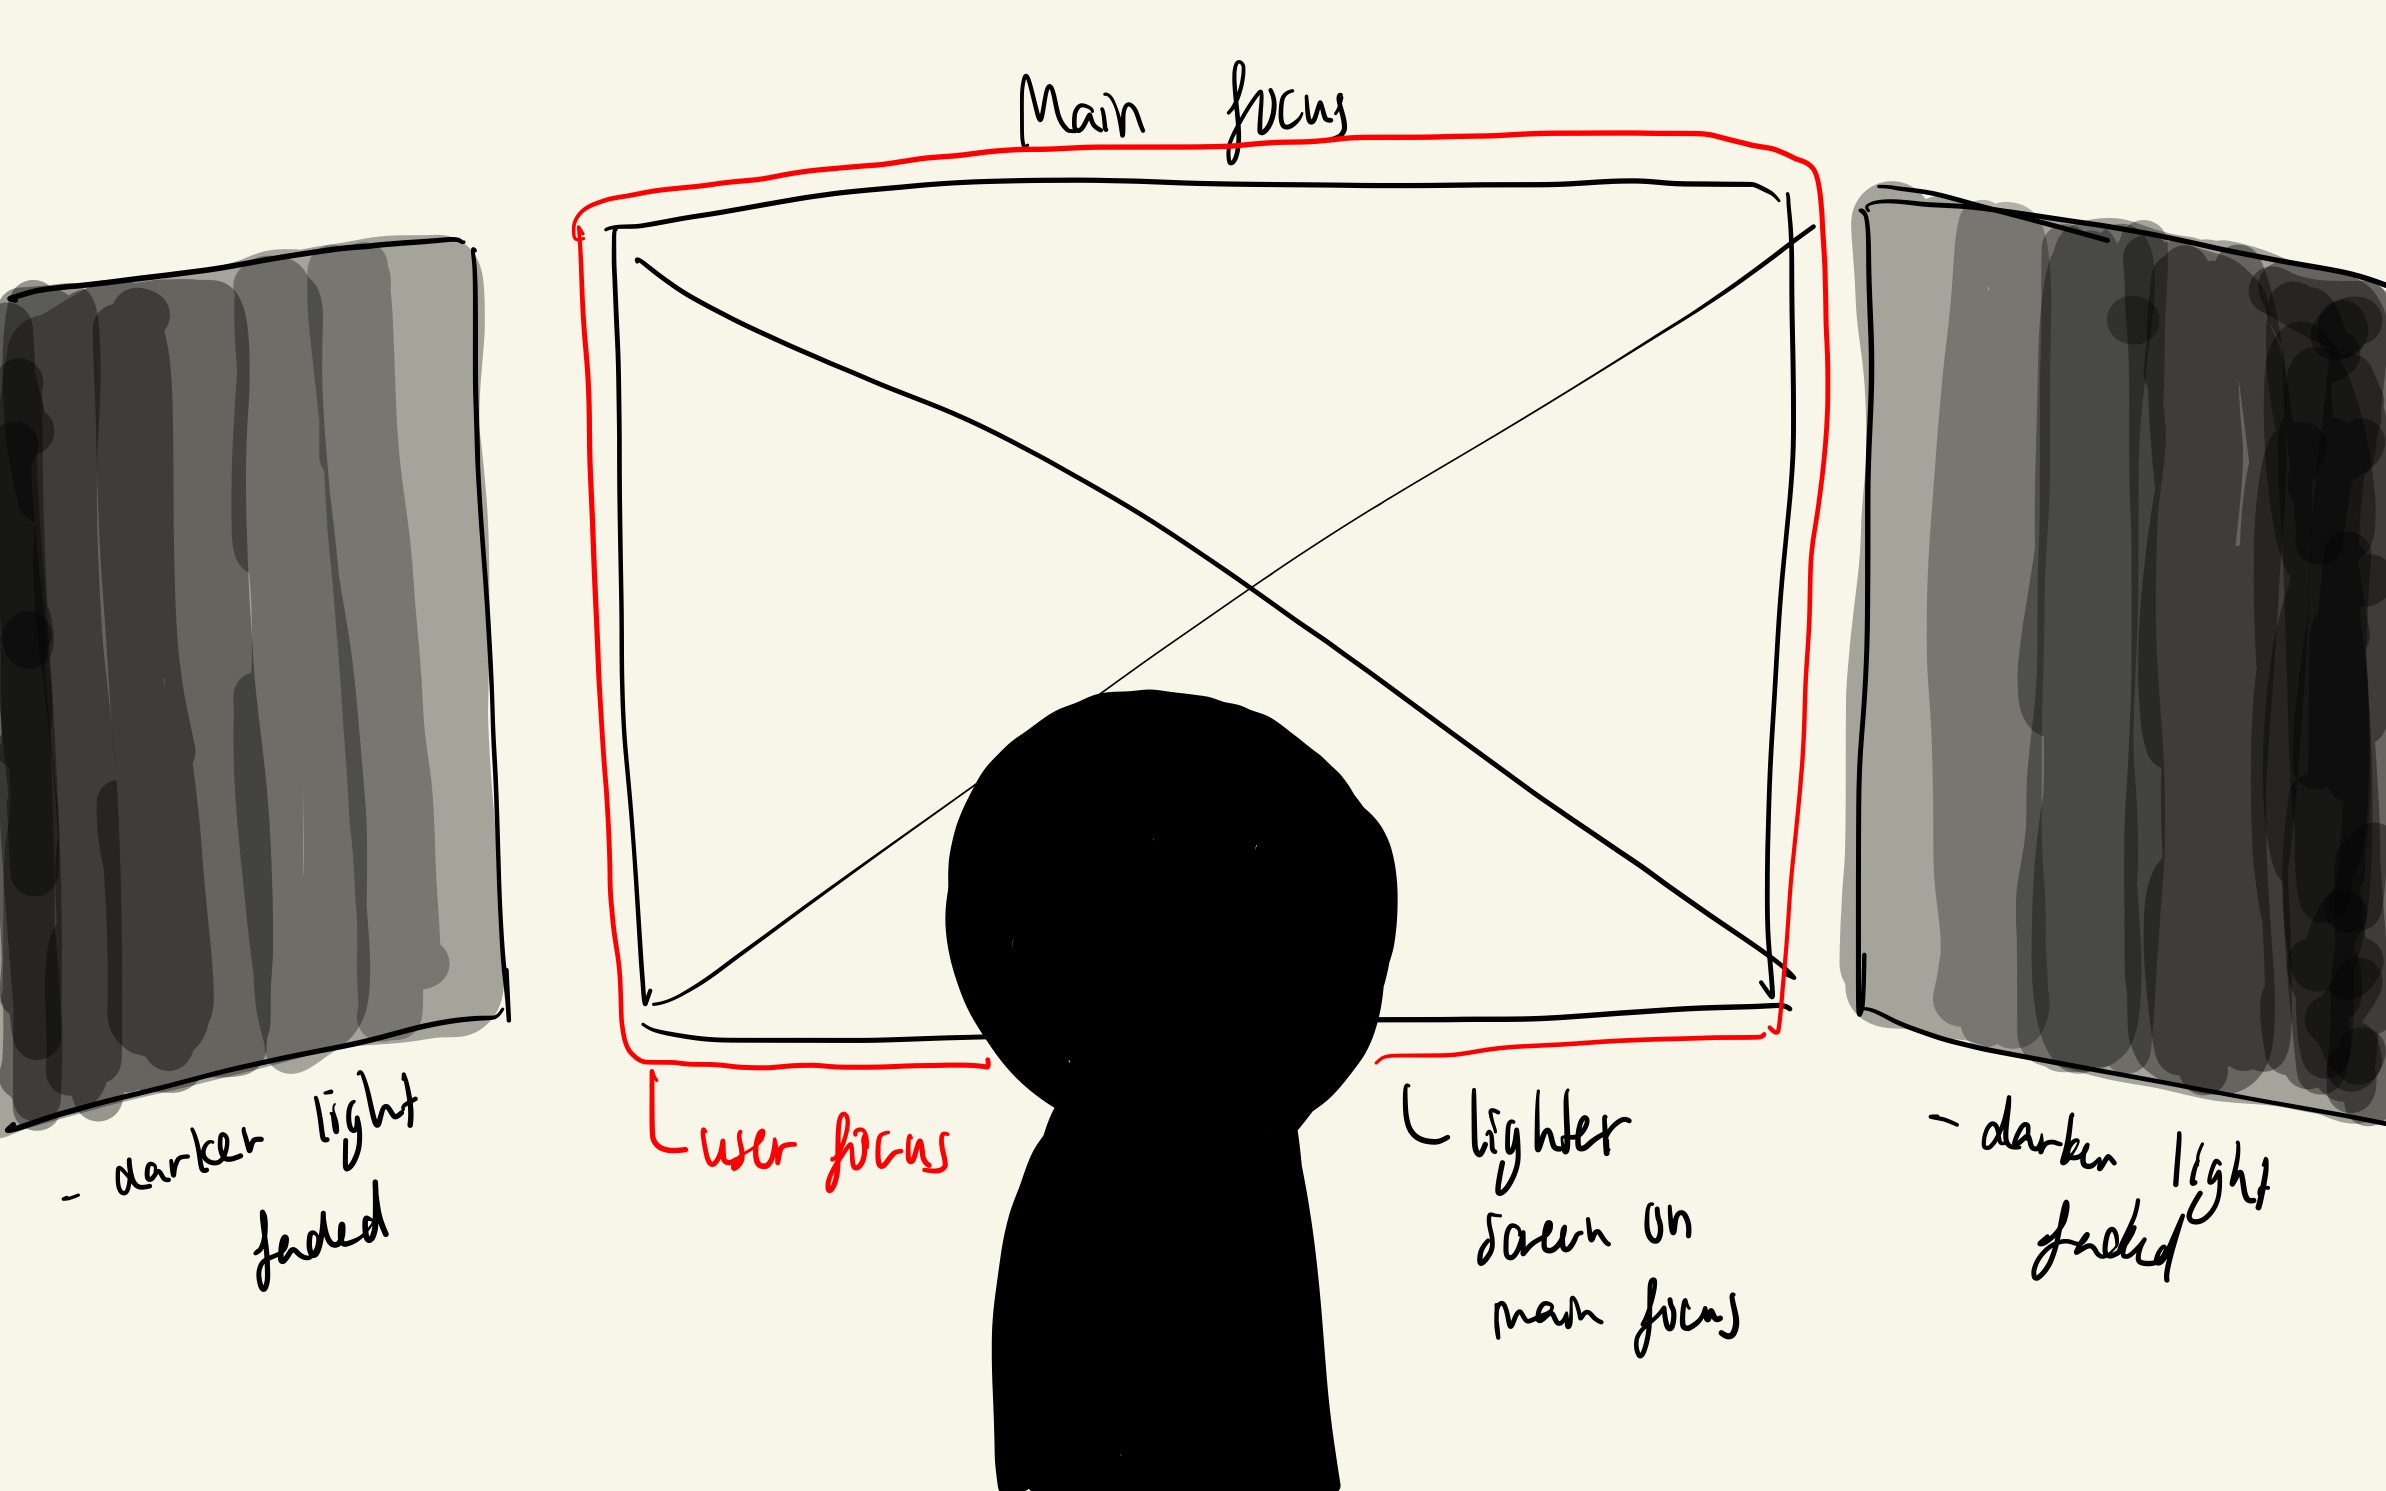 Main focus
- darker light
faded
user focus
lighter
screen on
main focus
- darker light
faded